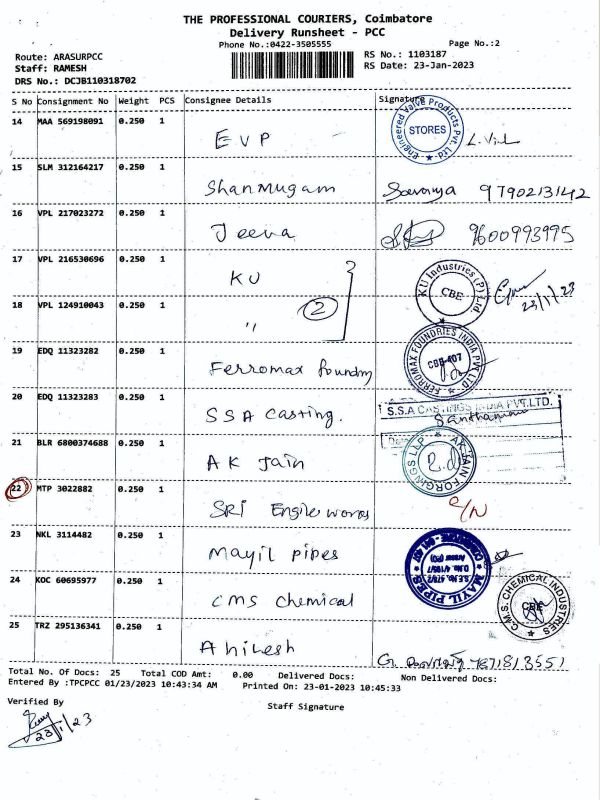 THE PROFESSIONAL COURIERS, Coimbatore
Delivery Runsheet - PCC
Phone No.:0422-3505555
Page No.:2
Route: ARASURPCC
Staff: RAMESH
DRS No.: DCJB110318702
RS No.: 1103187
RS Date: 23-Jan-2023
S No Consignment No Weight PCS Consignee Details Signature
14 MAA 569198091 0.250 1 EVP
Engineered Valve Products Pvt. Ltd STORES
15 SLM 312164217 0.250 1 Shanmugam Sowmya 9790213142
16 VPL 217023272 0.250 1 Jeeva 9600993995
17 VPL 216530696 0.250 1 KU
KU Industries (P) Ltd. CBE
23/1/23
18 VPL 124910043 0.250 1 " 2
19 EDQ 11323282 0.250 1 Ferromax foundry
FERROMAX FOUNDRIES INDIA PVT LTD CBE-407
20 EDQ 11323283 0.250 1 SSA Casting.
S.S.A CASTINGS INDIA PVT.LTD.
Date
21 BLR 6800374688 0.250 1 AK Jain
AK JAIN FORGINGS LLP
22 MTP 3022882 0.250 1 SRI Engileworks
23 NKL 3114482 0.250 1 Mayil Pipes
MAYIL PIPES
24 KOC 60695977 0.250 1 CMS Chemical
C.M.S. CHEMICAL INDUSTRIES CBE
25 TRZ 295136341 0.250 1 Ahilesh
Total No. Of Docs: 25 Total COD Amt: 0.00 Delivered Docs: Non Delivered Docs:
Entered By :TPCPCC 01/23/2023 10:43:34 AM Printed On: 23-01-2023 10:45:33
Verified By
Staff Signature
23/1/23